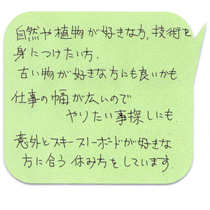 自然や植物が好きな方、技術を
身につけたい方。
古い物が好きな方にも良いかも
仕事の幅が広いので
やりたい事探しにも
意外とスキースノーボードが好きな
方に合う休み方をしています。